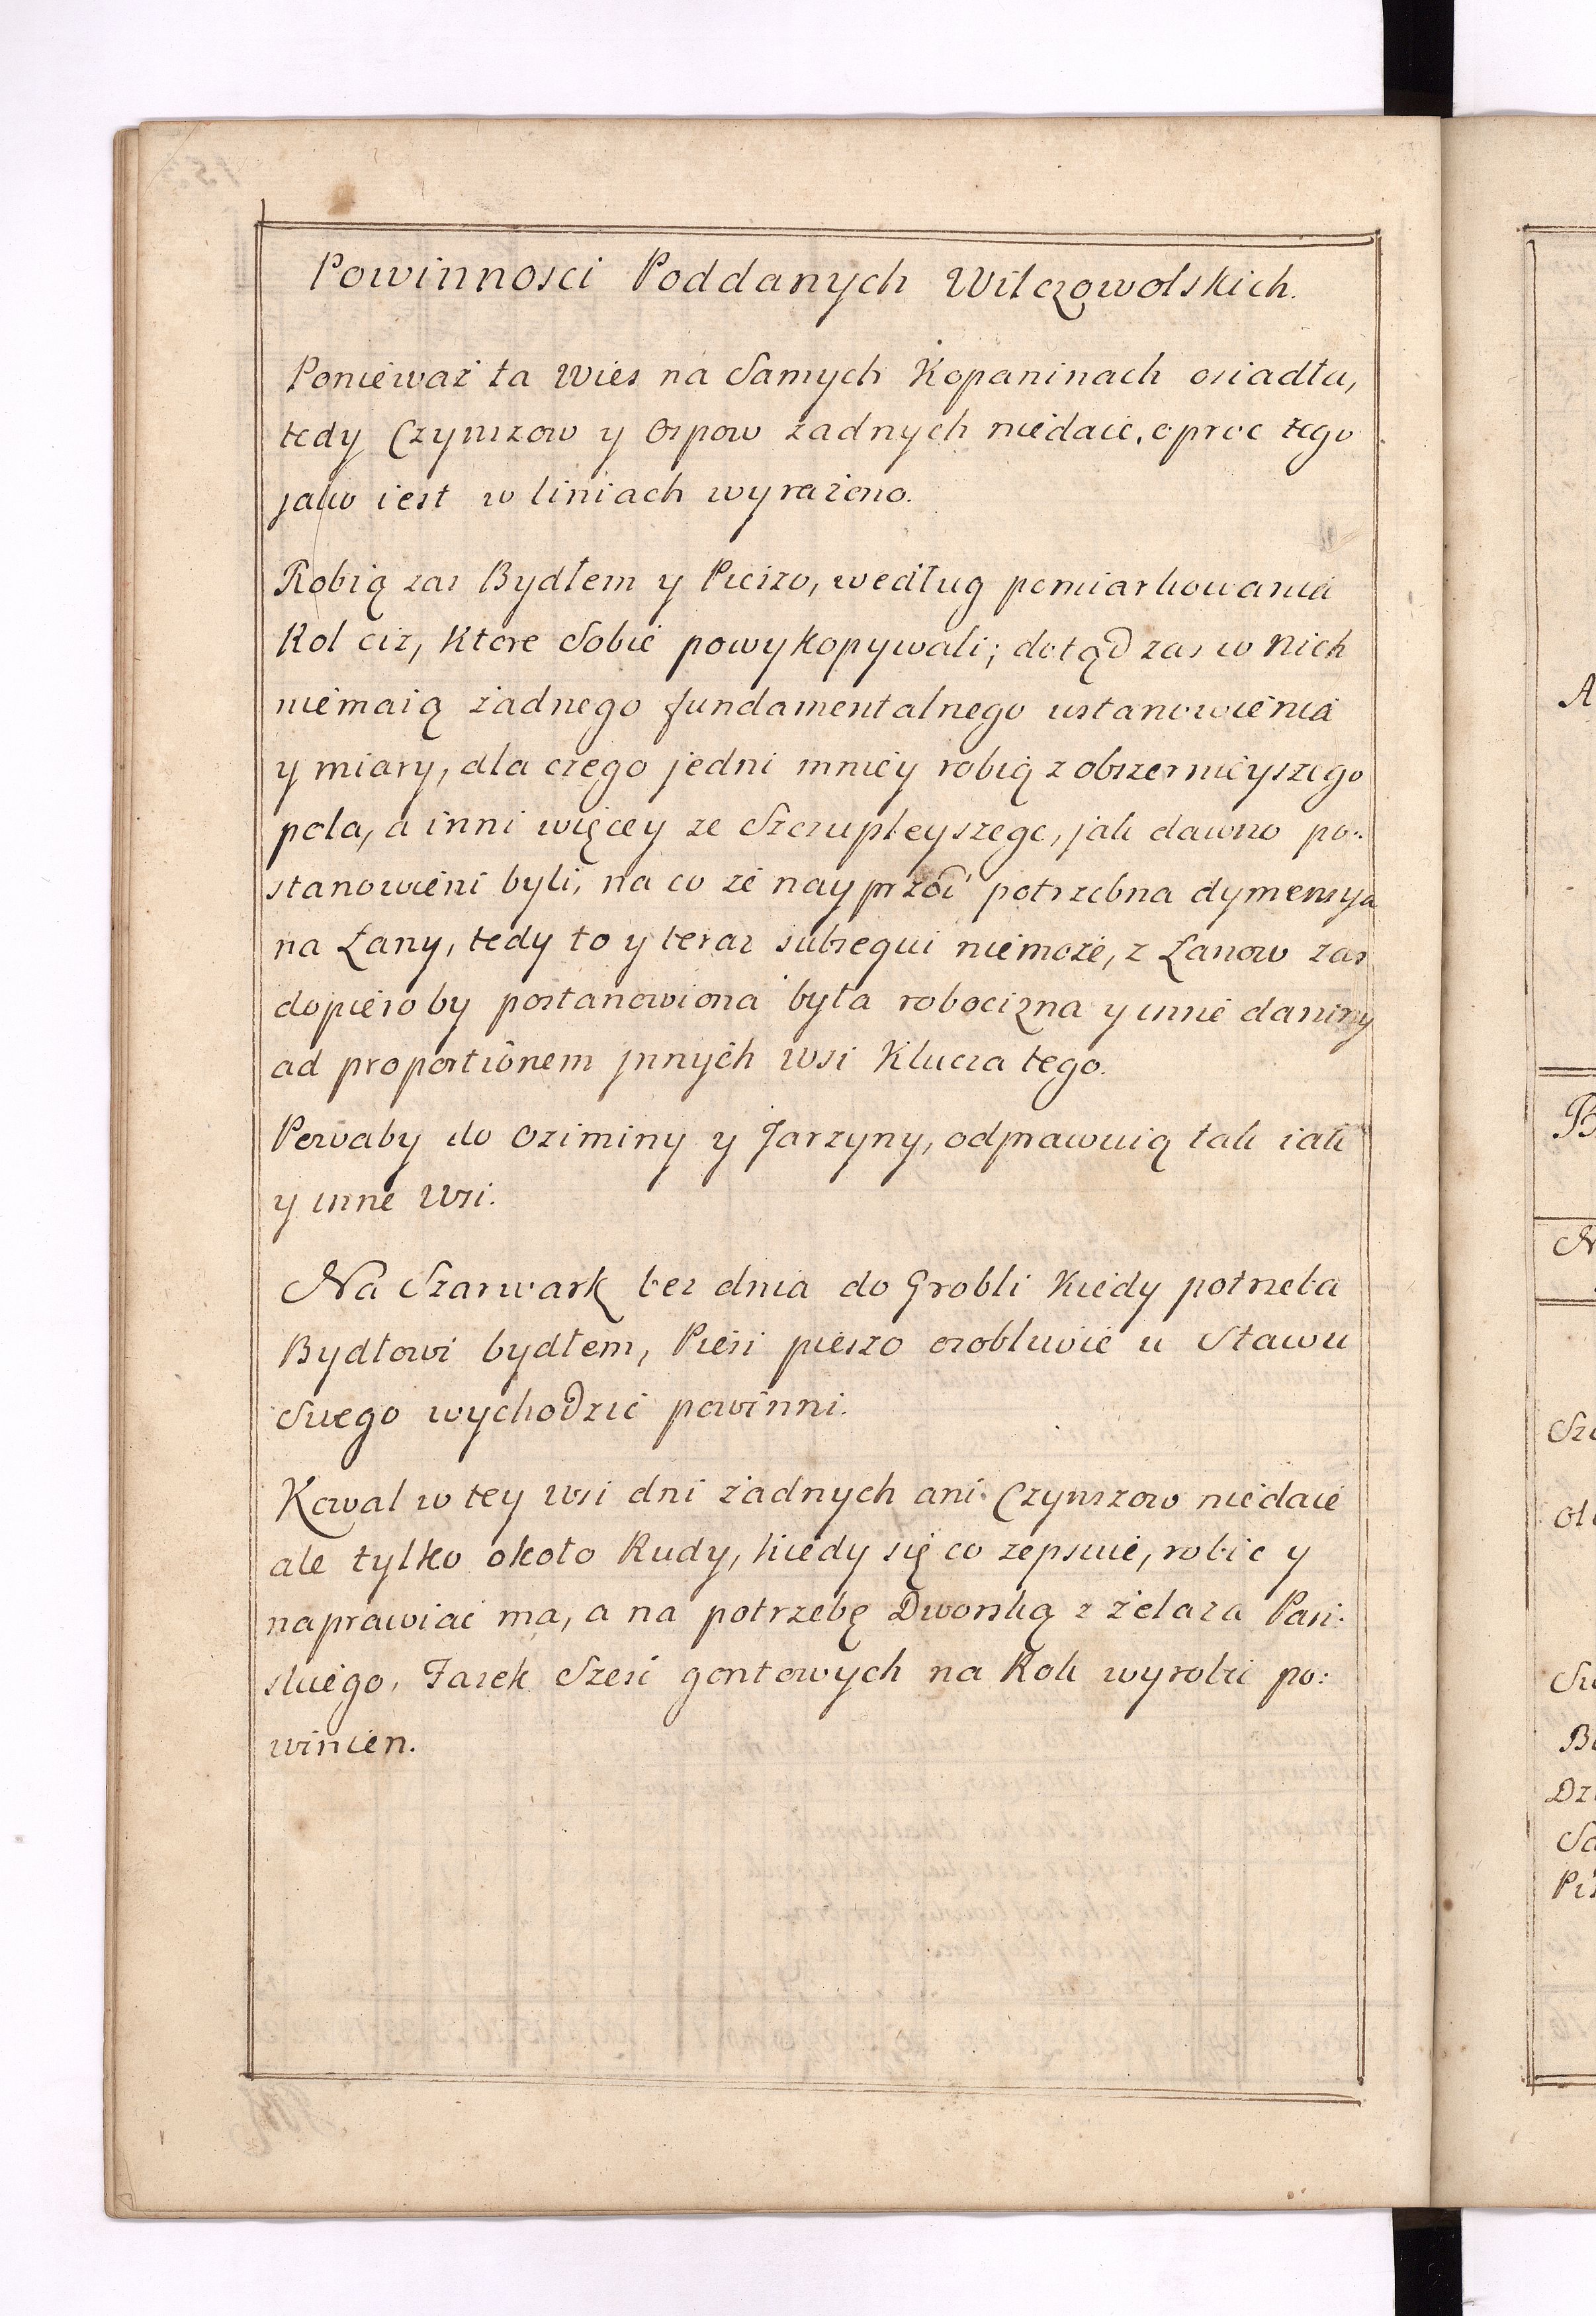 Powinnosci Poddanych Wilczowolskich.
Ponieważ ta Wies na Samych Kopaninach osiadła,
tedy Czynszow y Ospow żadnych niedaie, oproc tego
jako iest w liniach wyrażono.
Robią zas Bydłem y Pieszo, według pomiarkowania
Rol ciż, Ktore Sobie powykopywali; dotąd zas w Nich
niemaią żadnego fundamentalnego ustanowienia
y miary, dla czego jedni mniey robią z obszernieyszego
pola, a inni więcey ze Szczupleyszego, jak dawno po:
stanowieni byli, na co że nayprzod potrzebna dymensya
na Łany, tedy to y teraz subsequi niemoże, z Łanow zas
dopiero by postanowiona była robocizna y inne daniny
ad proportionem jnnych Wsi Klucza tego.
Powaby do Oziminy y Jarzyny, odprawuią tak iak
y inne Wsi.
Na Szarwark bez dnia do Grobli Kiedy potrzeba
Bydłowi bydłem, Piesi pieszo osobliwie u Stawu
Swego wychodzić powinni.
Kowal w tey wsi dni żadnych ani Czynszow niedaie
ale tylko około Rudy, kiedy się co zepsuie, robic y
naprawiać ma, a na potrzebę Dworską z żelaza Pan:
skiego, Fasek Szesć gontowych na Rok wyrobić po:
winien.
A
B
N
Pi
Dz